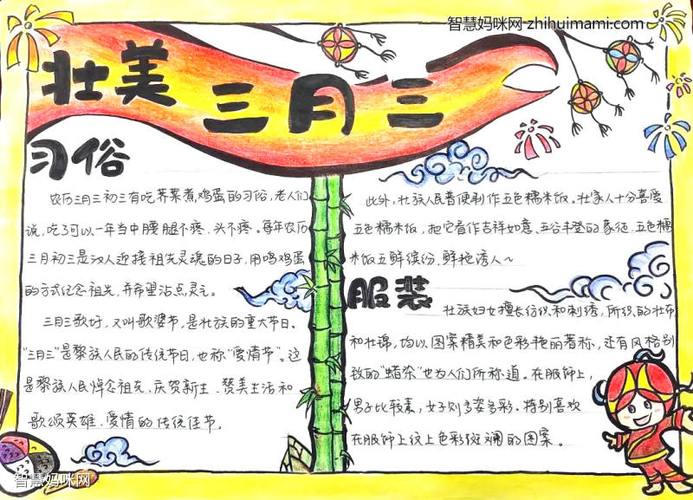 智慧妈咪网-zhihuimami.com
壮美 三月三
习俗
农历三月三初三有吃荠菜煮鸡蛋的习俗,老人们
说,吃了可以一年当中腰腿不疼、头不疼。每年农历
三月初三是汉人迎接祖先灵魂的日子,用吃鸡蛋
的方式纪念祖先,并希望沾点灵气。
三月三歌圩,又叫歌婆节,是壮族的重大节日。
"三月三"是黎族人民的传统节日,也称"爱情节"。这
是黎族人民悼念祖先、庆贺新生、赞美生活和
歌颂英雄、爱情的传统佳节。
此外,壮族人民着便制作五色糯米饭。壮家人十分喜爱
五色糯米饭,把它看作吉祥如意、五谷丰登的象征,五色糯
米饭五鲜缤纷,鲜艳诱人~
服装
壮族妇女擅长纺织和刺绣,所织的壮布
和壮锦,均以图案精美和色彩艳丽著称,还有风格别
致的"蜡染"也为人们所称道。在服饰上,
男子比较素,女子则多姿多彩。特别喜欢
在服饰上纹上色彩斑斓的图案。
智慧妈咪网